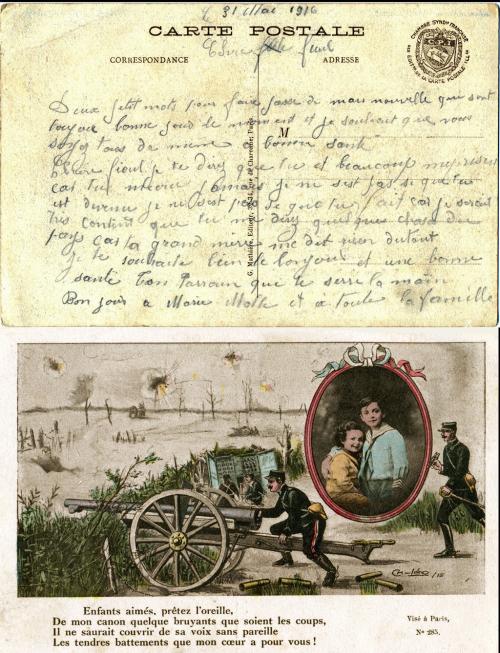 Le 31 Mai 1916
CARTE POSTALE
Chère fieul
CORRESPONDANCE
ADRESSE
CHAMBRE SYND. FRANÇAISE
DES ÉDITEURS DE LA CARTE POSTALE ILL.
M
Deux petit mots pour faire passe de mais nouvelle que sont
toujour bonne pour le moment et je souhait que vous
soyez tous de meme bonne santé
Chère fieul je te diry que tu et beaucoup
car tu jamais je ne sest pas si que tu
est devenu je ne sest pas se que tu fait car je serait
très content que tu me diry quelque chose du
pays car la grand mère me dit rien du tout
je te souhaite bien le bonjour et une bonne
santé ton Parrain que te serre la main
Bon jour a Marie et à toute la famille
Enfants aimés, prêtez l'oreille,
De mon canon quelque bruyants que soient les coups,
Il ne saurait couvrir de sa voix sans pareille
Les tendres battements que mon cœur a pour vous !
Visé à Paris,
No 285.